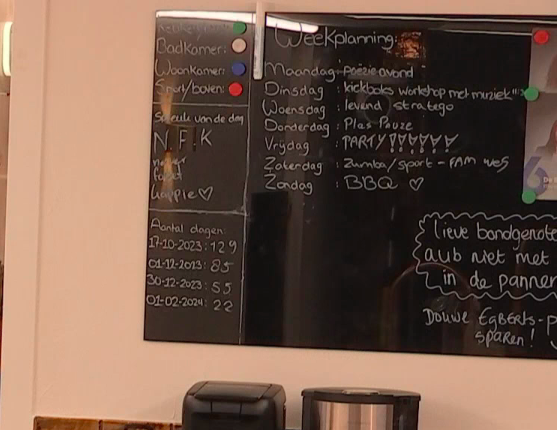 Badkamer:
Woonkamer:
Snor/boven:
Spreuk van de dag
N.F.K
never
forget
happie ♡
Aantal dagen:
17-10-2023: 129
01-12-2023: 85
30-12-2023: 55
01-02-2024: 22
Weekplanning:
Maandag : poëzie avond
Dinsdag : kickboks workshop met muziek
Woensdag : levend stratego
Donderdag : Plas Pauze
Vrijdag : PARTY!!!!!!
Zaterdag : Zumba/sport - FAM
Zondag : BBQ ♡
lieve bandgenote
aub niet met
in de pannen
Douwe Egberts-p
sparen!